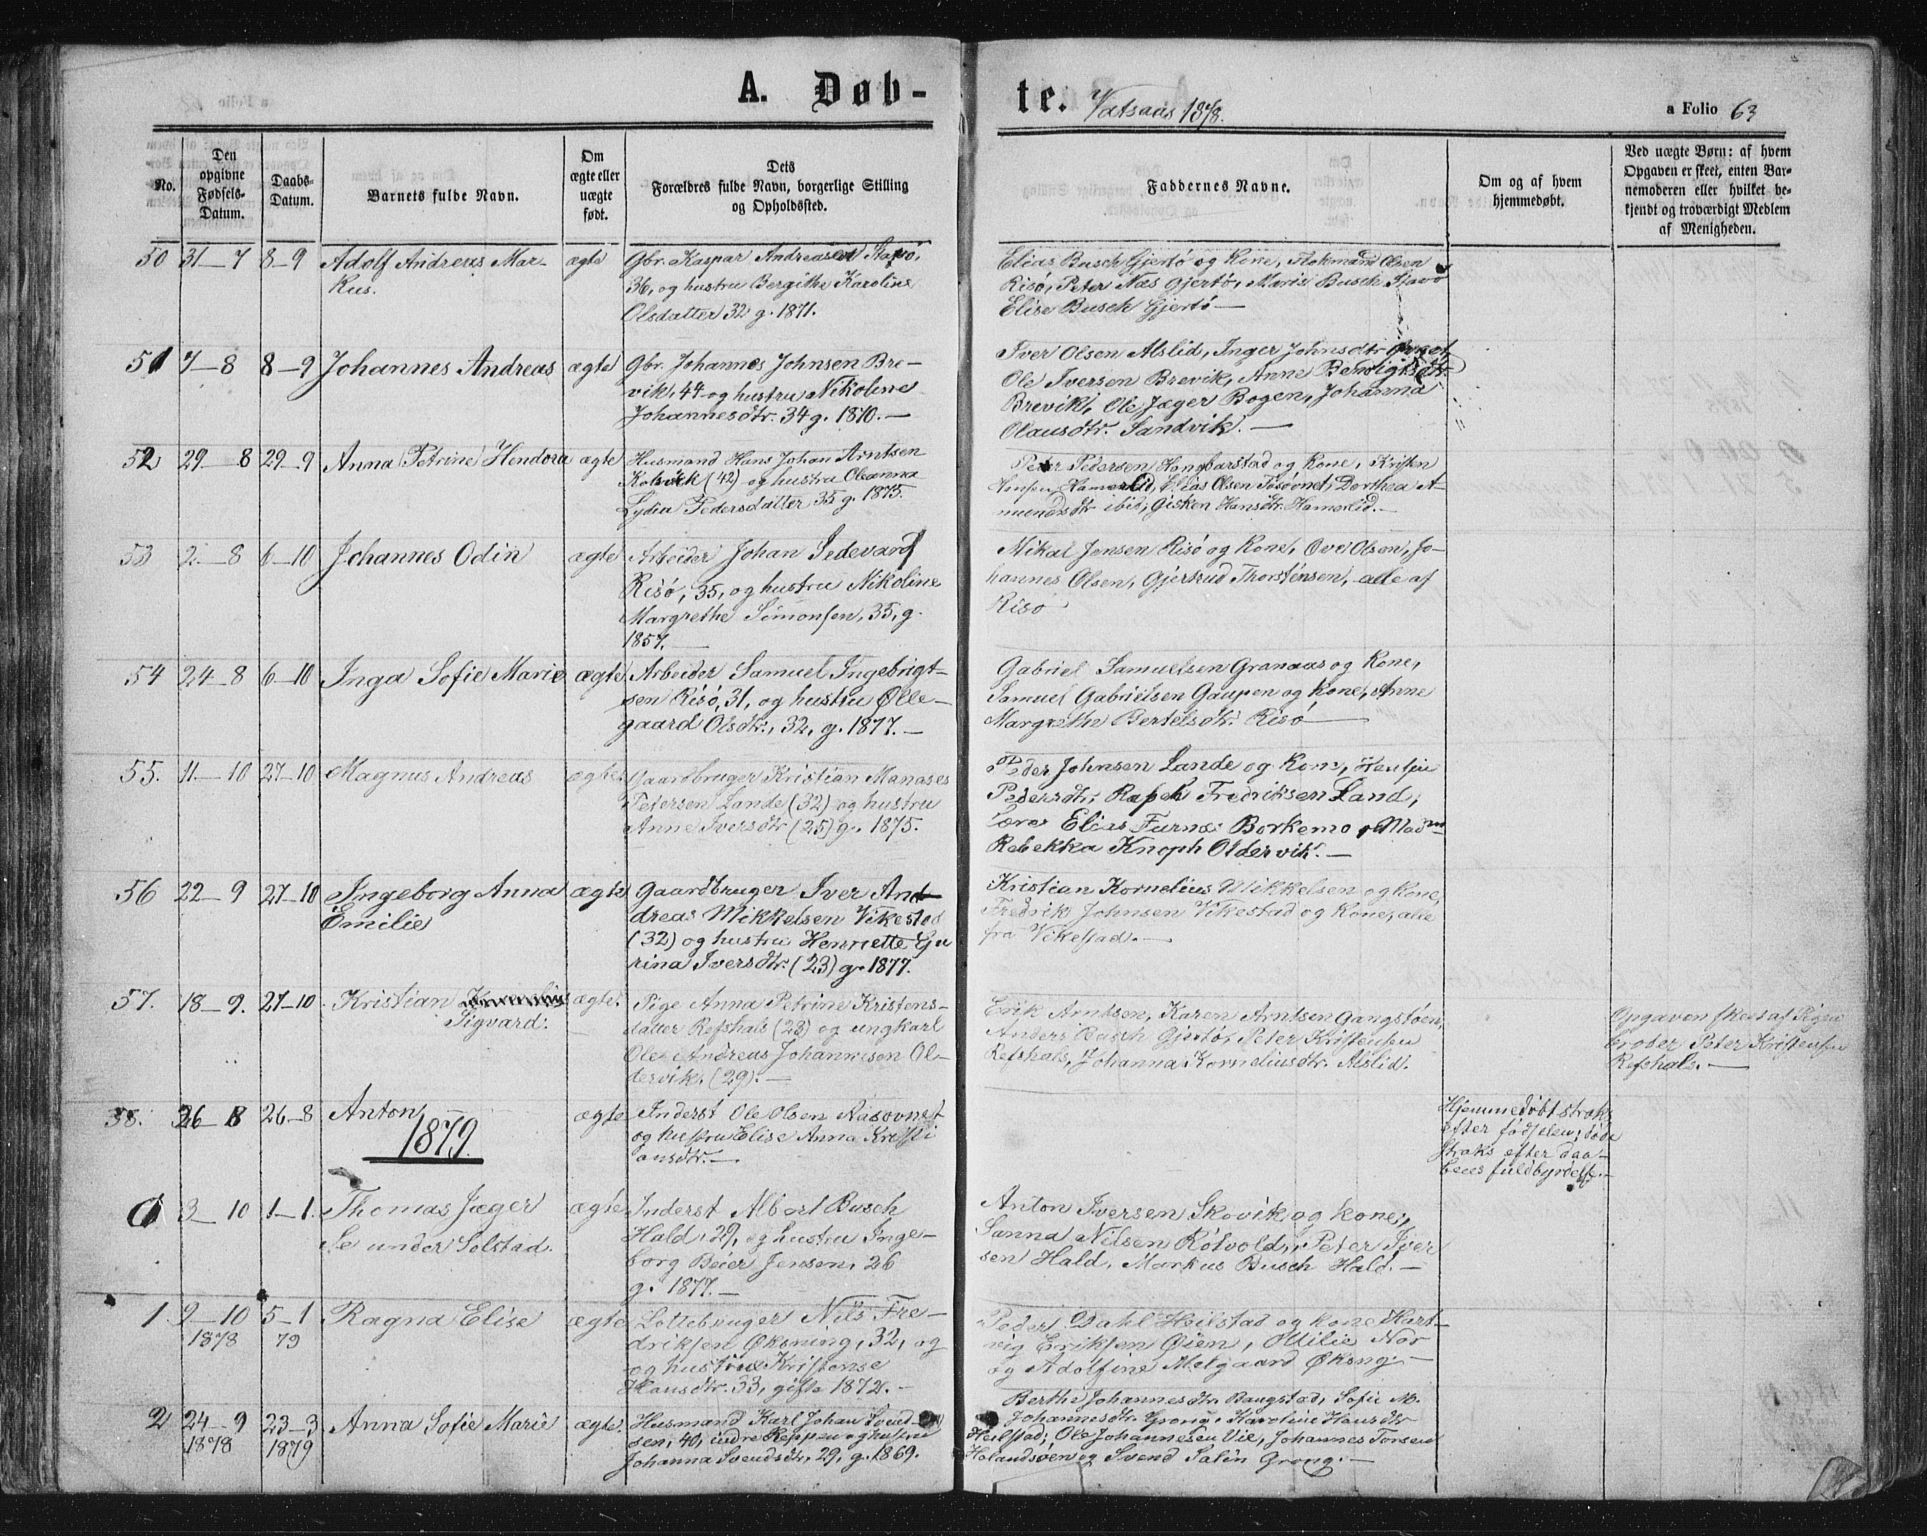 A. Døb-
te. Vatsaas 1878.
a Folio 63
No.
Den opgivne Fødsels-Datum.
Daabs-Datum.
Barnets fulde Navn.
Om ægte eller uægte født.
Dets Forældres fulde Navn, borgerlige Stilling og Opholdssted.
Faddernes Navne.
Om og af hvem hjemmedøbt.
Ved uægte Børn: af hvem Opgaven er skeet, enten Bar-nemoderen eller hvilket be-kjendt og troværdigt Medlem af Menigheden.
50 31–7 8–9 Adolf Andreas Mar-
kus.
ægte
Gbr. Kaspar Andreasen Stavø,
36, og hustru Bergithe Karoline
Olsdatter 32 g. 1871.
Elias Busch Gjertø og Kone, Olsen
Risø, Peter Næs Gjertø, Maris Busch Stavø
Elise Busch Gjertø –
51 7–8 8–9 Johannes Andreas ægte
Gbr. Johannes Johnsen Bre-
vik, 44 og hustru Nikoline
Johannesdtr. 34 g. 1870. –
Iver Olsen Alslid, Inger Johnsdtr
Ole Iversen Brevik, Anne Bendigtsdtr.
Brevik, Ole Jæger Bogen, Johanna
Olausdtr. Sandvik. –
52 29–8 29–9 Anna Petrine Hendora ægte
Husmand Hans Johan Arntsen
Kolvik (42) og hustru Oleanna
Lydia Pedersdatter 35 g. 1875.
Peder Pedersen Hongbarstad og Kone, Kristen
Hansen Hamerlid, Elias Olsen Aasovnet, Dorthea A-
mundsdtr ibid, Gisken Hansdtr. Hamerlid. –
53 2–8 6–10 Johannes Odin ægte
Arbeider Johan Sedevard
Risø, 35, og hustru Nikoline
Margrethe Simonsen, 35, g.
1857. –
Nikal Jensen Risø og Kone, Ove Olsen, Jo-
hannes Olsen, Gjertrud Thorstensen, alle af
Risø
54 24–8 6–10 Inga Sofie Marie ægte
Arbeider Samuel Ingebrigt-
sen Risø, 31, og hustru Olle-
gaard Olsdtr., 32, g. 1877. –
Gabriel Samuelsen Granaas og Kone,
Samuel Gabrielsen Gaupen og Kone, Anne
Margrethe Bertelsdtr. Risø –
55. 11–10 27–10 Magnus Andreas ægte
Gaardbruger Kristian Manases
Petersen Lande (32) og hustru
Anne Iversdtr (25) g. 1875.
Peder Johnsen Lande og Kone,
Pedersdtr. Fredriksen Land,
Elias Furnæs Borkemo, Mad.
Rebekka Knoph Oldervik. –
56 22–9 27–10 Ingeborg Anna
Emilie
ægte
Gaardbruger Iver And-
dreas Mikkelsen Vikestad
(32) og hustru Henriette Gu
rina Iversdtr. (23) g. 1877.
Kristian Kornelius Mikkelsen og Kone,
Fredrik Johnsen Vikestad og Kone, alle
fra Vikestad. –
57. 18–9. 27–10. Kristian Kornelius
Sigvard.
ægte.
Pige Anna Petrine Kristens-
datter Refshals (28) og ungkarl
Ole Andreas Johannesen Ol-
dervik. (29). –
Erik Arntsen, Karen Arntsen Gangstøen,
Anders Busch Gjertø, Peter Kristensen
Refshals, Johanna Korneliusdtr. Alslid.
Opgaven skeet af Pigens
broder Peter Kristensen
Refshals. –
58. 26–8 26–8 Anton ægte
Inderst Ole Olsen Aasovnet
og hustru Elise Anna Kristi
ansdtr. –
Hjemmedøbt straks
efter fødselen; døde
straks efter daa-
bens fuldbyrdelse. –
1879.
3–10 1–1. Thomas Jæger
Se under Solstad.
ægte
Inderst Albert Busch
Hald, 29, og hustru Inge-
borg Beier Jensen, 26
g. 1877. –
Anton Iversen Skovik og kone,
Sanna Nilsen Rötvold, Peter Iver
sen Hald, Markus Busch Hald. –
1 9–10 5–1 Ragna Elise ægte
1878 79
Lottebruger Nils Fre-
driksen Øksning, 32, og
og hustru Kristense
Hansdtr. 33, gifte 1872. –
Peder Dahl Heilstad og kone Hart-
vig Eriksen Øien, Otilie Nor
og Adolfine Melgaard Økeng. –
2 24–9 23–3 Anna Sofie Marie ægte.
1878 1879
Husmand Karl Johan Svend-
sen, 40, indre Reppen og hustru
Johanna Svendsdtr. 29, g. 1869.
Berthe Johannesdtr. Baugstad, Sofie M.
Johannesdtr. Grong, Karoline Hansdtr
Heilstad; Ole Johannesen Vie, Johannes Torsen
Holandsøen og Svend Salin Grong. –